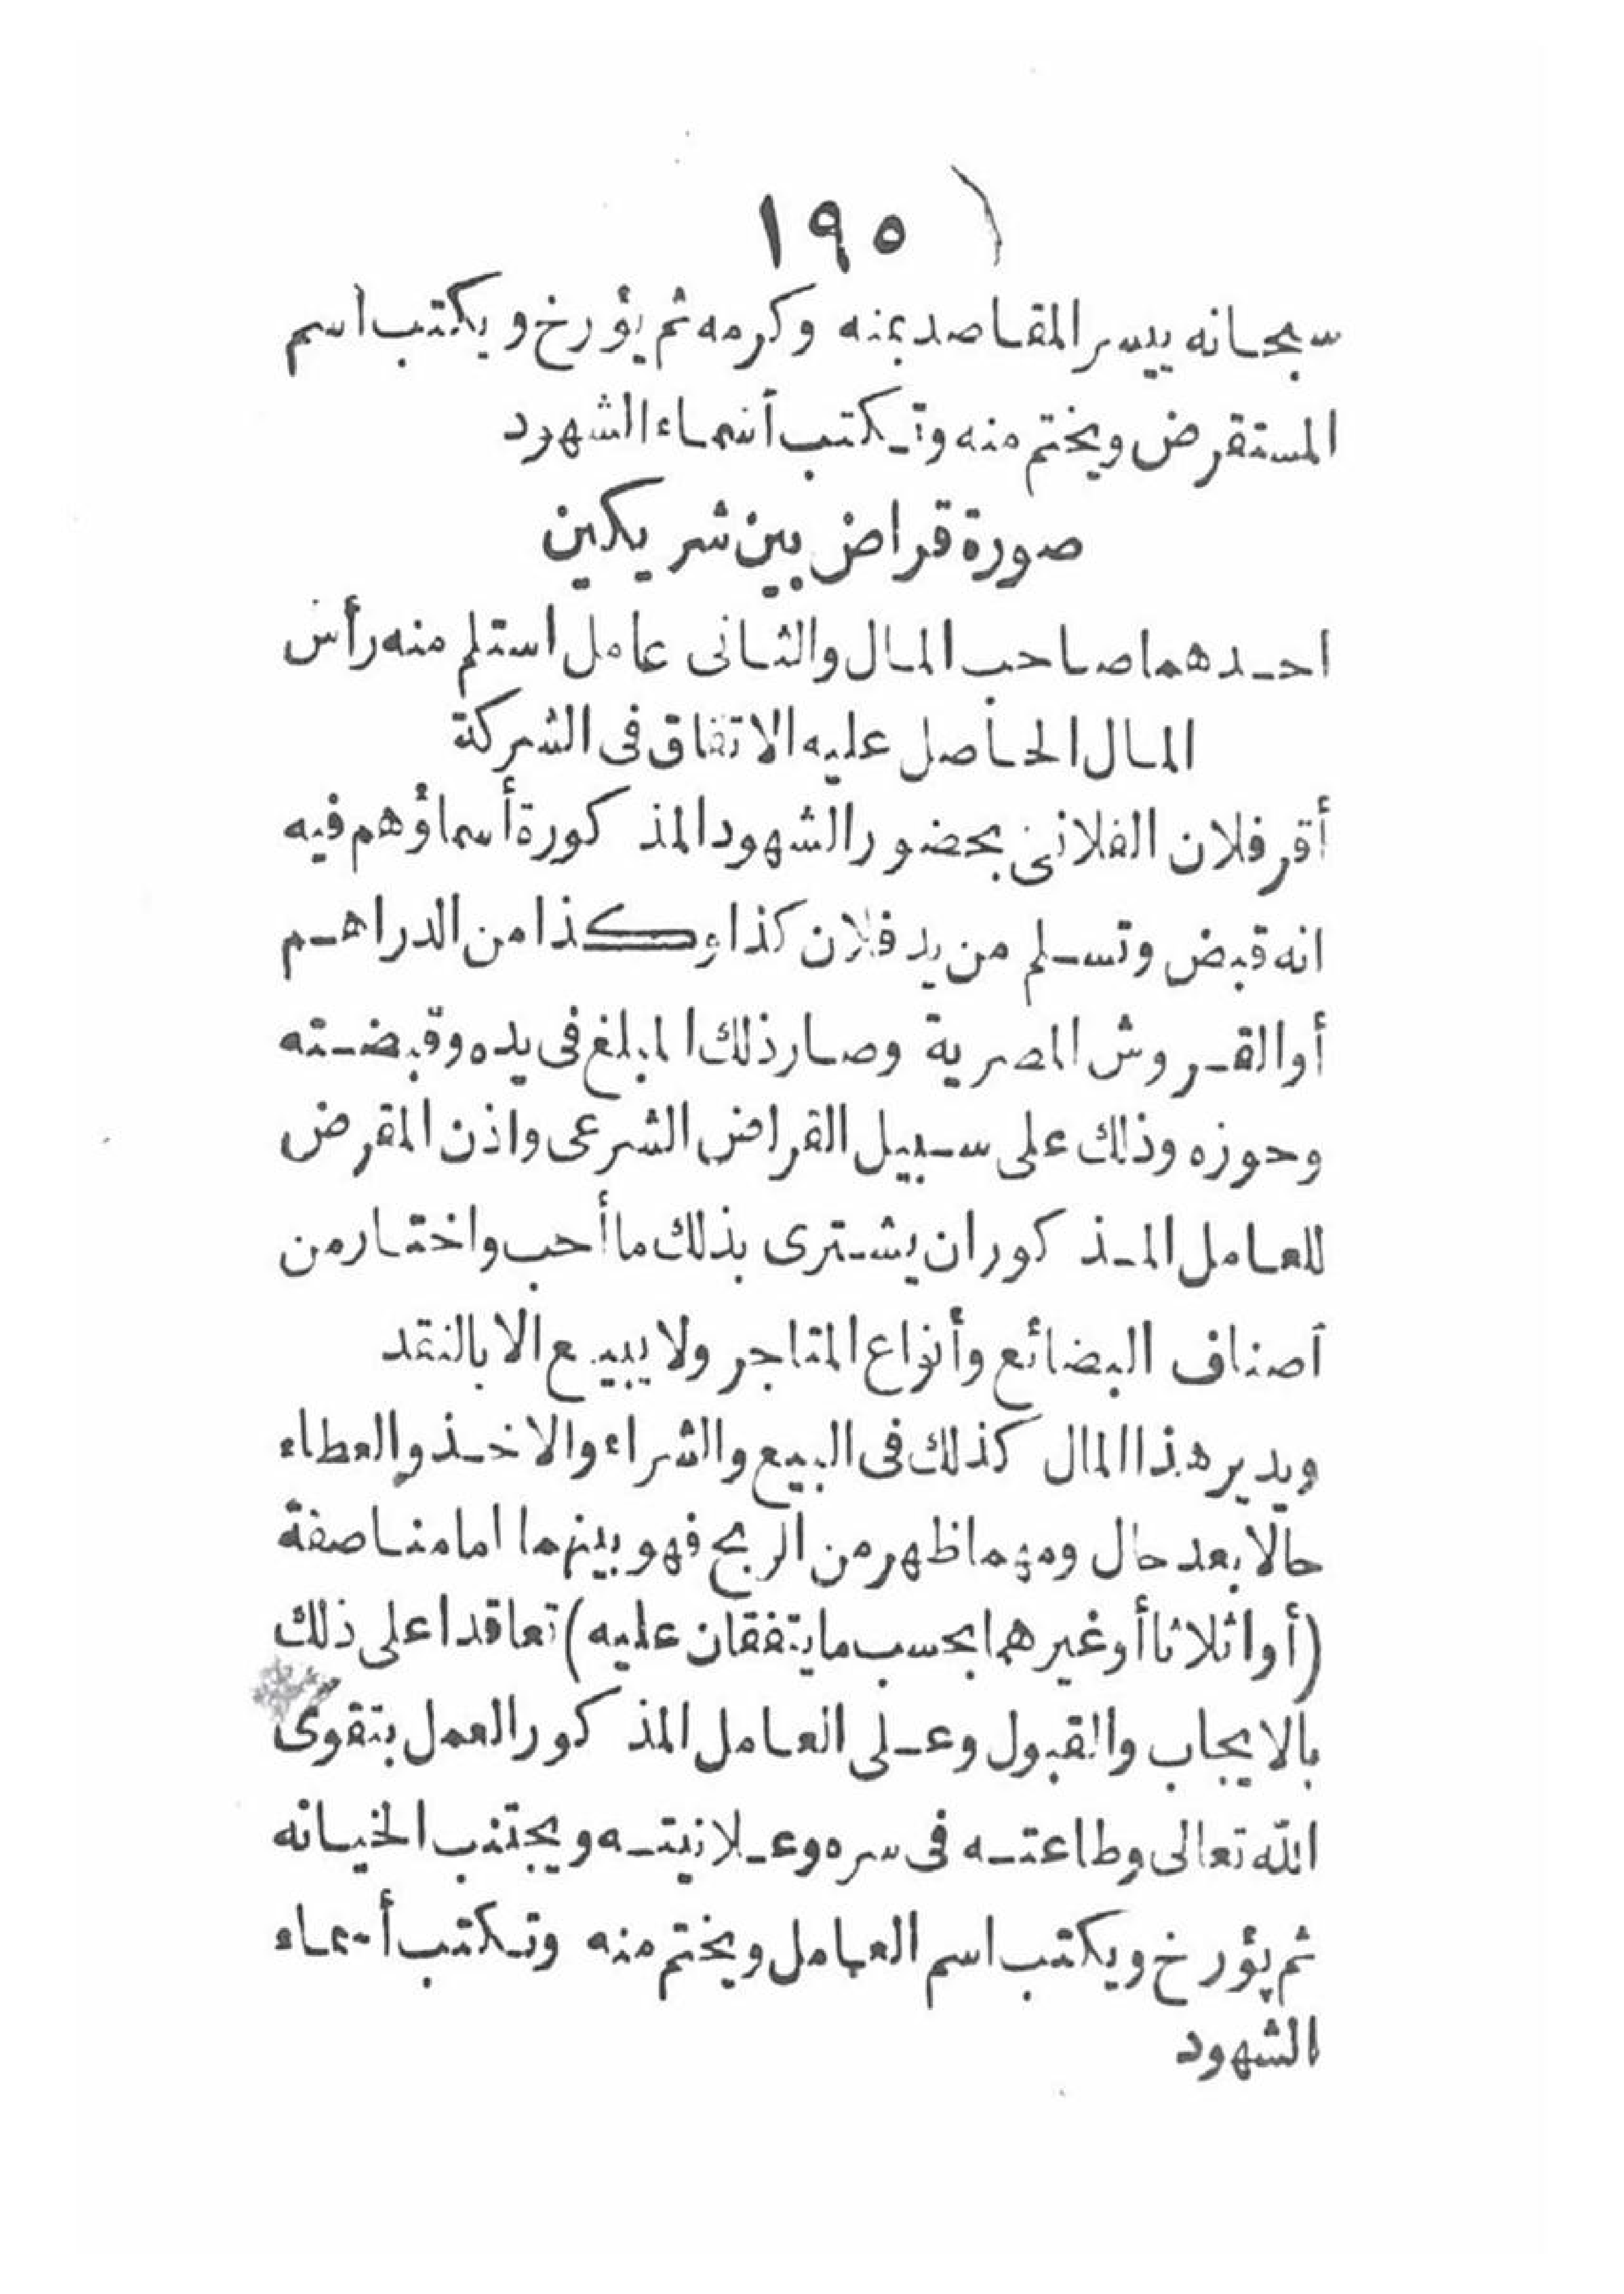 ١٩٥
سبحانه ييسر المقاصد بمنه وكرمه ثم يؤرخ ويكتب اسم
المستقرض ويختم منه وتكتب أسماء الشهود
صورة قراض بين شريكين
احدهما صاحب المال والثانى عامل استلم منه رأس
المال الحاصل عليه الاتفاق فى الشركة
أقر فلان الفلانى بحضور الشهود المذكورة أسماؤهم فيه
انه قبض وتسلم من يد فلان كذا وكذا من الدراهم
أو القروش المصرية وصار ذلك المبلغ فى يده وقبضته
وحوزه وذلك على سبيل القراض الشرعى واذن المقرض
للعامل المذكور ان يشترى بذلك ما أحب واختار من
أصناف البضائع وأنواع المتاجر ولا يبيع الا بالنقد
ويدير هذا المال كذلك فى البيع والشراء والاخذ والعطاء
حالا بعد حال ومهما ظهر من الربح فهو بينهما اما مناصفة
(أو اثلاثا أو غيرهما بحسب ما يتفقان عليه) تعاقدا على ذلك
بالايجاب والقبول وعلى العامل المذكور العمل بتقوى
الله تعالى وطاعته فى سره وعلانيته ويجتنب الخيانه
ثم يؤرخ ويكتب اسم العامل ويختم منه وتكتب أسماء
الشهود